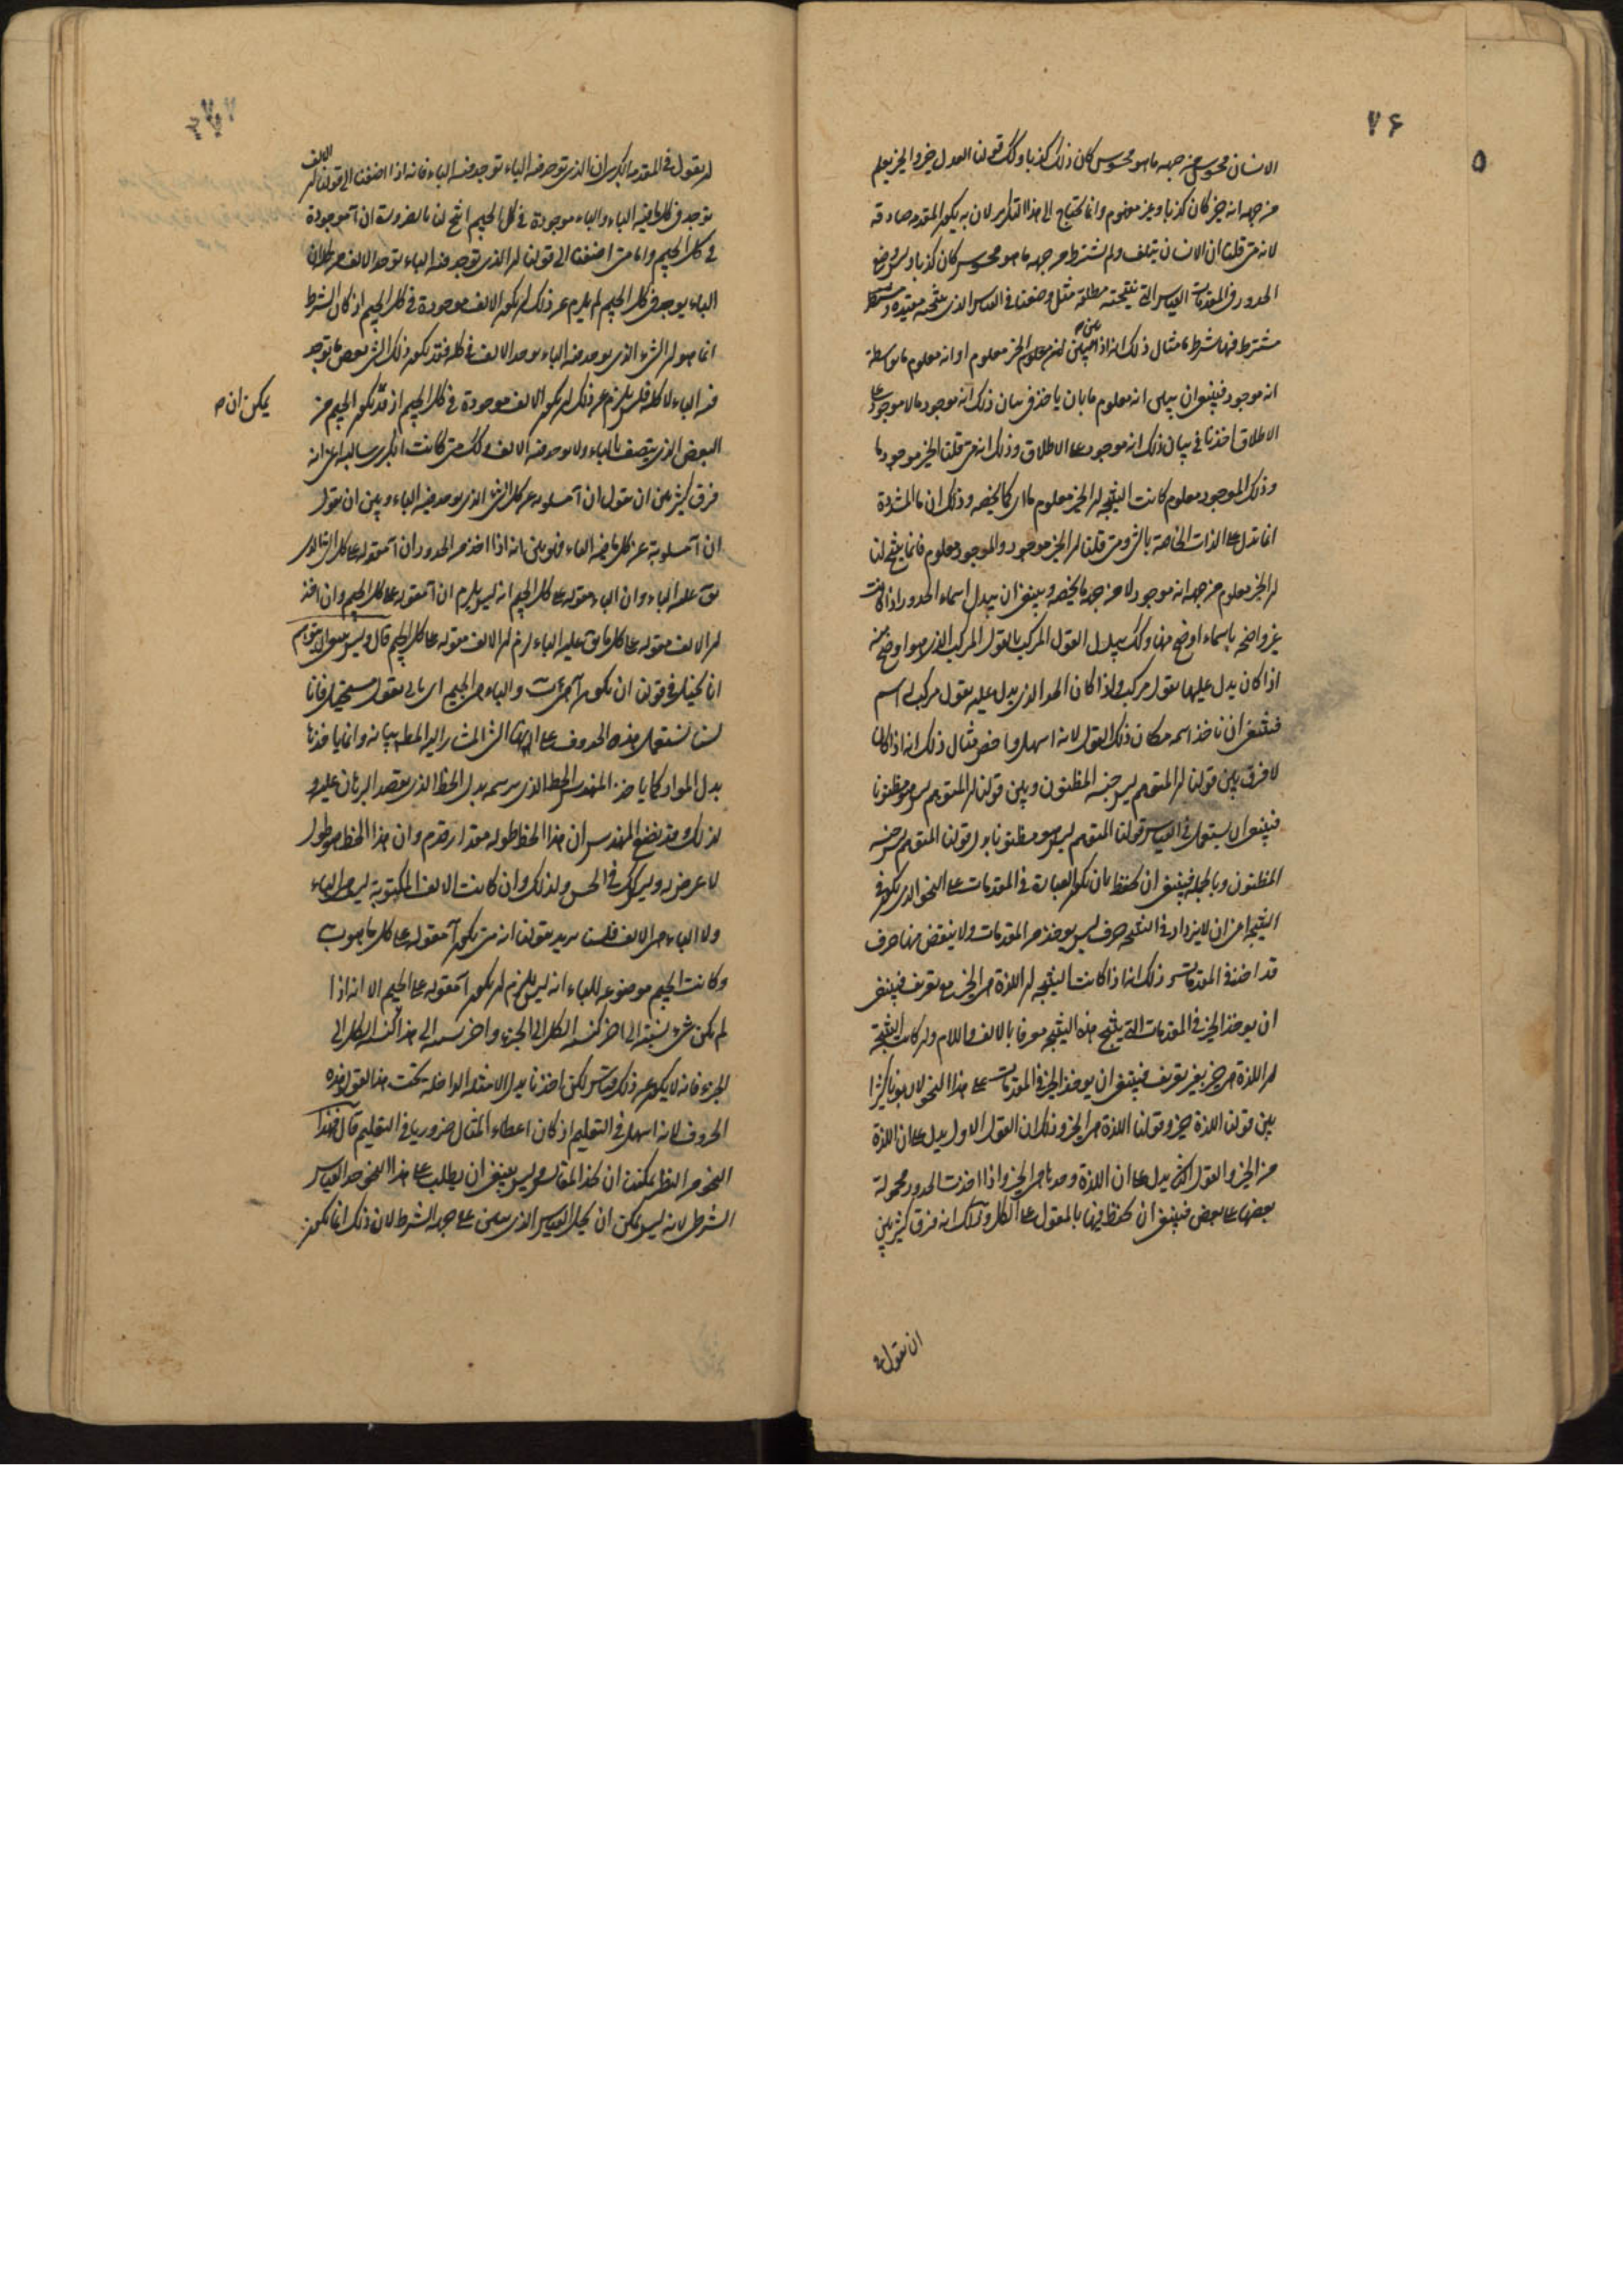 ٧۶
٥
الانسان محسوس من جهة ما هو محسوس كان ذلك كذبا وكك قولنا العدل خير والخير يعلم
من جهة انه خير كان كذبا وغير مفهوم وانما يحتاج الى هذا التكرير لان به يكون المقدمه صادقه
لانه متى قلنا ان الانسان يتلف ولم نشترط من جهة ما هو محسوس كان كذبا وليس وضع
الحدود في المقدمات القياس التى نتيجته مطلقة مثل وضعها في القياس الذى نتيجته مقيدة
مشترط فيها شرط ما مثال ذلك انه اذا تبين ان الخير معلوم او انه معلوم ما بوسطة
انه موجود فينبغى ان يبين انه معلوم ما بان ياخذ في بيان ذلك انه موجود ما لا موجود على
الاطلاق اخذنا في بيان ذلك انه موجود على الاطلاق وذلك انه متى قلنا الخير موجود ما
وذلك الموجود معلوم كانت النتيجه ان الخير معلوم ما اى كما يخصه وذلك ان ما المشددة
انما تدل على الذات الخاصة بالشىء ومتى قلنا ان الخير موجود والموجود معلوم فانما ينتج لنا
ان الخير معلوم من جهة انه موجود لا من جهة ما يخصه وينبغى ان يبدل اسماء الحدود اذا كانت
غير واضحه باسماء اوضح منها وكك يبدل القول المركب بالقول المركب الذى هو اوضح منه
اذا كان يدل عليها بقول مركب واذا كان الحد الذى يدل عليه بقول مركب له اسم
فينبغى ان ناخذ اسمه مكان ذلك القول لانه اسهل واخص مثال ذلك انه اذا كان
لا فرق بين قولنا ان المتوهم ليس جنسه المظنون وبين قولنا ان المتوهم ليس هو مظنونا
فينبغى ان يستعمل في القياس قولنا المتوهم ليس هو مظنونا بدل قولنا المتوهم ليس جنسه
المظنون وبالجمله فينبغى ان يحتفظ بان يكون العبارة في المقدمات على النحو الذى يكون في
النتيجه اعنى ان لا يزداد في النتيجه حرف ليس يوخذ من المقدمات ولا ينقص منها حرف
قد اخذ في المقدمات وذلك انه اذا كانت النتيجه ان اللذة هى الخير مع تعريف فينبغى
ان يوخذ الخير في المقدمات التى ينتج هذه النتيجه معرفا بالالف واللام وان كانت النتيجة
ان اللذة هى خير بغير تعريف فينبغى ان يوخذ الخير في المقدمات على هذا النحو لان بونا كثيرا
بين قولنا اللذة خير وقولنا اللذة هى الخير وذلك ان القول الاول يدل على ان اللذة
من الخير والقول الثانى يدل على ان اللذة وحدها هى الخير واذا اخذت الحدود محمولة
بعضها على بعض فينبغى ان يحتفظ فيها بالمقول على الكل وذلك انه فرق كثير بين
ان نقول
ان نقول في المقدمة الكبرى ان الذى توجد فيه الباء توجد فيه الباء فانه اذا اضفنا الى قولنا ان الالف
توجد في كل ما فيه الباء والباء موجودة في كل الجيم انتج لنا بالضرورة ان آ موجودة
في كل الجيم واما متى اضفنا الى قولنا ان الذى توجد فيه الباء توجد الالف
الباء يوجد في كل الجيم لم يلزم عن ذلك ان يكون الالف موجودة في كل الجيم اذ كان الشرط
انما هو ان الشىء الذى يوجد فيه الباء يوجد الالف في كله فقد يكون ذلك الشىء بعض ما توجد
فيه الباء لا كله فليس يلزم عن ذلك ان يكون الالف موجودة في كل الجيم اذ قد يكون الجيم من
يمكن ان
البعض الذى يتصف بالباء ولا يوجد فيه الالف وكك متى كانت الكبرى سالبة اعنى انه
فرق كثير بين ان نقول ان آ مسلوبه عن كل الشىء الذى يوجد فيه الباء وبين ان نقول
ان آ مسلوبة عن كل ما فيه الباء فهو بين انه اذا اخذ من الحدود ان آ مقوله على كل الشىء الذى
يق عليه الباء وان الباء مقوله على كل الجيم انه ليس يلزم ان آ مقوله على كل الجيم وان اخذ
ان الالف مقوله على كل ما يق عليه الباء لزم ان الالف مقوله على كل الجيم قال وليس
انا يخيل في قولنا ان يكون آ هى ب والباء هى الجيم اى نقول مستحيل فانا
لسنا نستعمل هذه الحروف على انها الشىء المشار اليه المطلوب بيانه وانما ياخذها
بدل المواد كما ياخذ المهندس الخط الذى يرسمه بدل الخط الذى يقصد البرهان عليه
لذلك وقد يضع المهندس ان هذا الخط طوله مقدار قدم وان هذا الخط هو طول
لا عرض له وليس كك في الحس ولذلك وان كانت الالف المكتوبة ليس هى الباء
ولا الباء هى الالف فلسنا نريد بقولنا انه متى يكون آ مقوله على كل ما هو ب
وكانت الجيم موضوعه للباء انه ليس يلزم ان يكون آ مقوله على الجيم الا انه اذا
لم يكن شىء نسبته الى اخر كنسبة الكل الى الجزء واخر نسبته الى هذا كنسبة الكل الى
الجزء فانه لا يكون عن ذلك قياس لكن اخذنا بدل الامثله الداخله تحت هذا القول هذه
الحروف لانه اسهل في التعليم اذ كان اعطاء المثال ضروريا في التعليم قال فبهذا
النحو من النظر يمكننا ان نحل المقاييس وليس ينبغى ان يطلب على هذا النحو حد القياس
الشرطى لانه ليس يمكن ان يحل القياس الذى يبين على جهة الشرط لان ذلك انما يكون